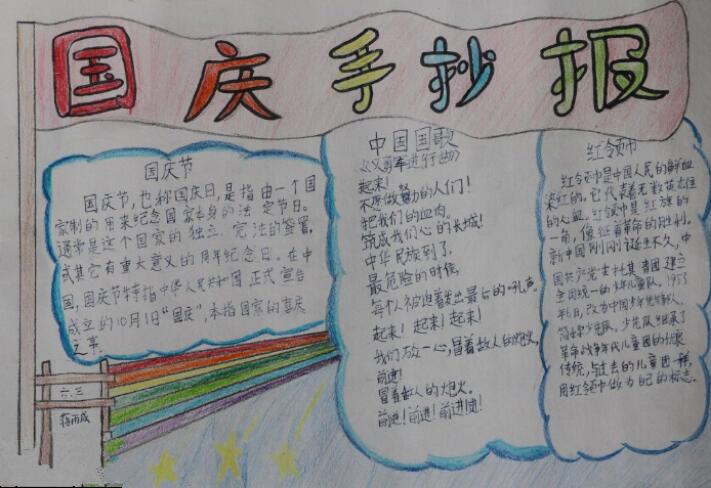 国庆手抄报
国庆节
国庆节,也称国庆日,是指由一个国
家制的用来纪念国家本身的法定节日。
通常是这个国家的独立、宪法的签署,
或其它有重大意义的周年纪念日。在中
国,国庆节特指中华人民共和国正式宣告
成立的10月1日“国庆”,本指国家的喜庆
之事。
六、三
中国国歌
《义勇军进行曲》
起来!
不愿做努力的人们!
把我们的血肉。
筑成我们心的长城!
中华民族到了,
最危险的时候,
每个人被迫着发出最后的吼声。
起来!起来!起来!
我们万一心,冒着敌人的炮火,
前进!
冒着敌人的炮火。
前进!前进!前进!进!
红令巾
红令巾是中国人民的鲜血
染红的。它代表着无数英雄
的心血。红领巾是红旗的
一角,象征着革命的胜利。
新中国刚刚诞生不久,中
国共产党委托其青团建立
全国统一的少年儿童队,1953
年6月,改为中国少年先锋队,
简称少先队,少先队继承了
革命战争年代儿童团的优良
传统,与过去的儿童团一样,
用红领巾做为自己的标志。